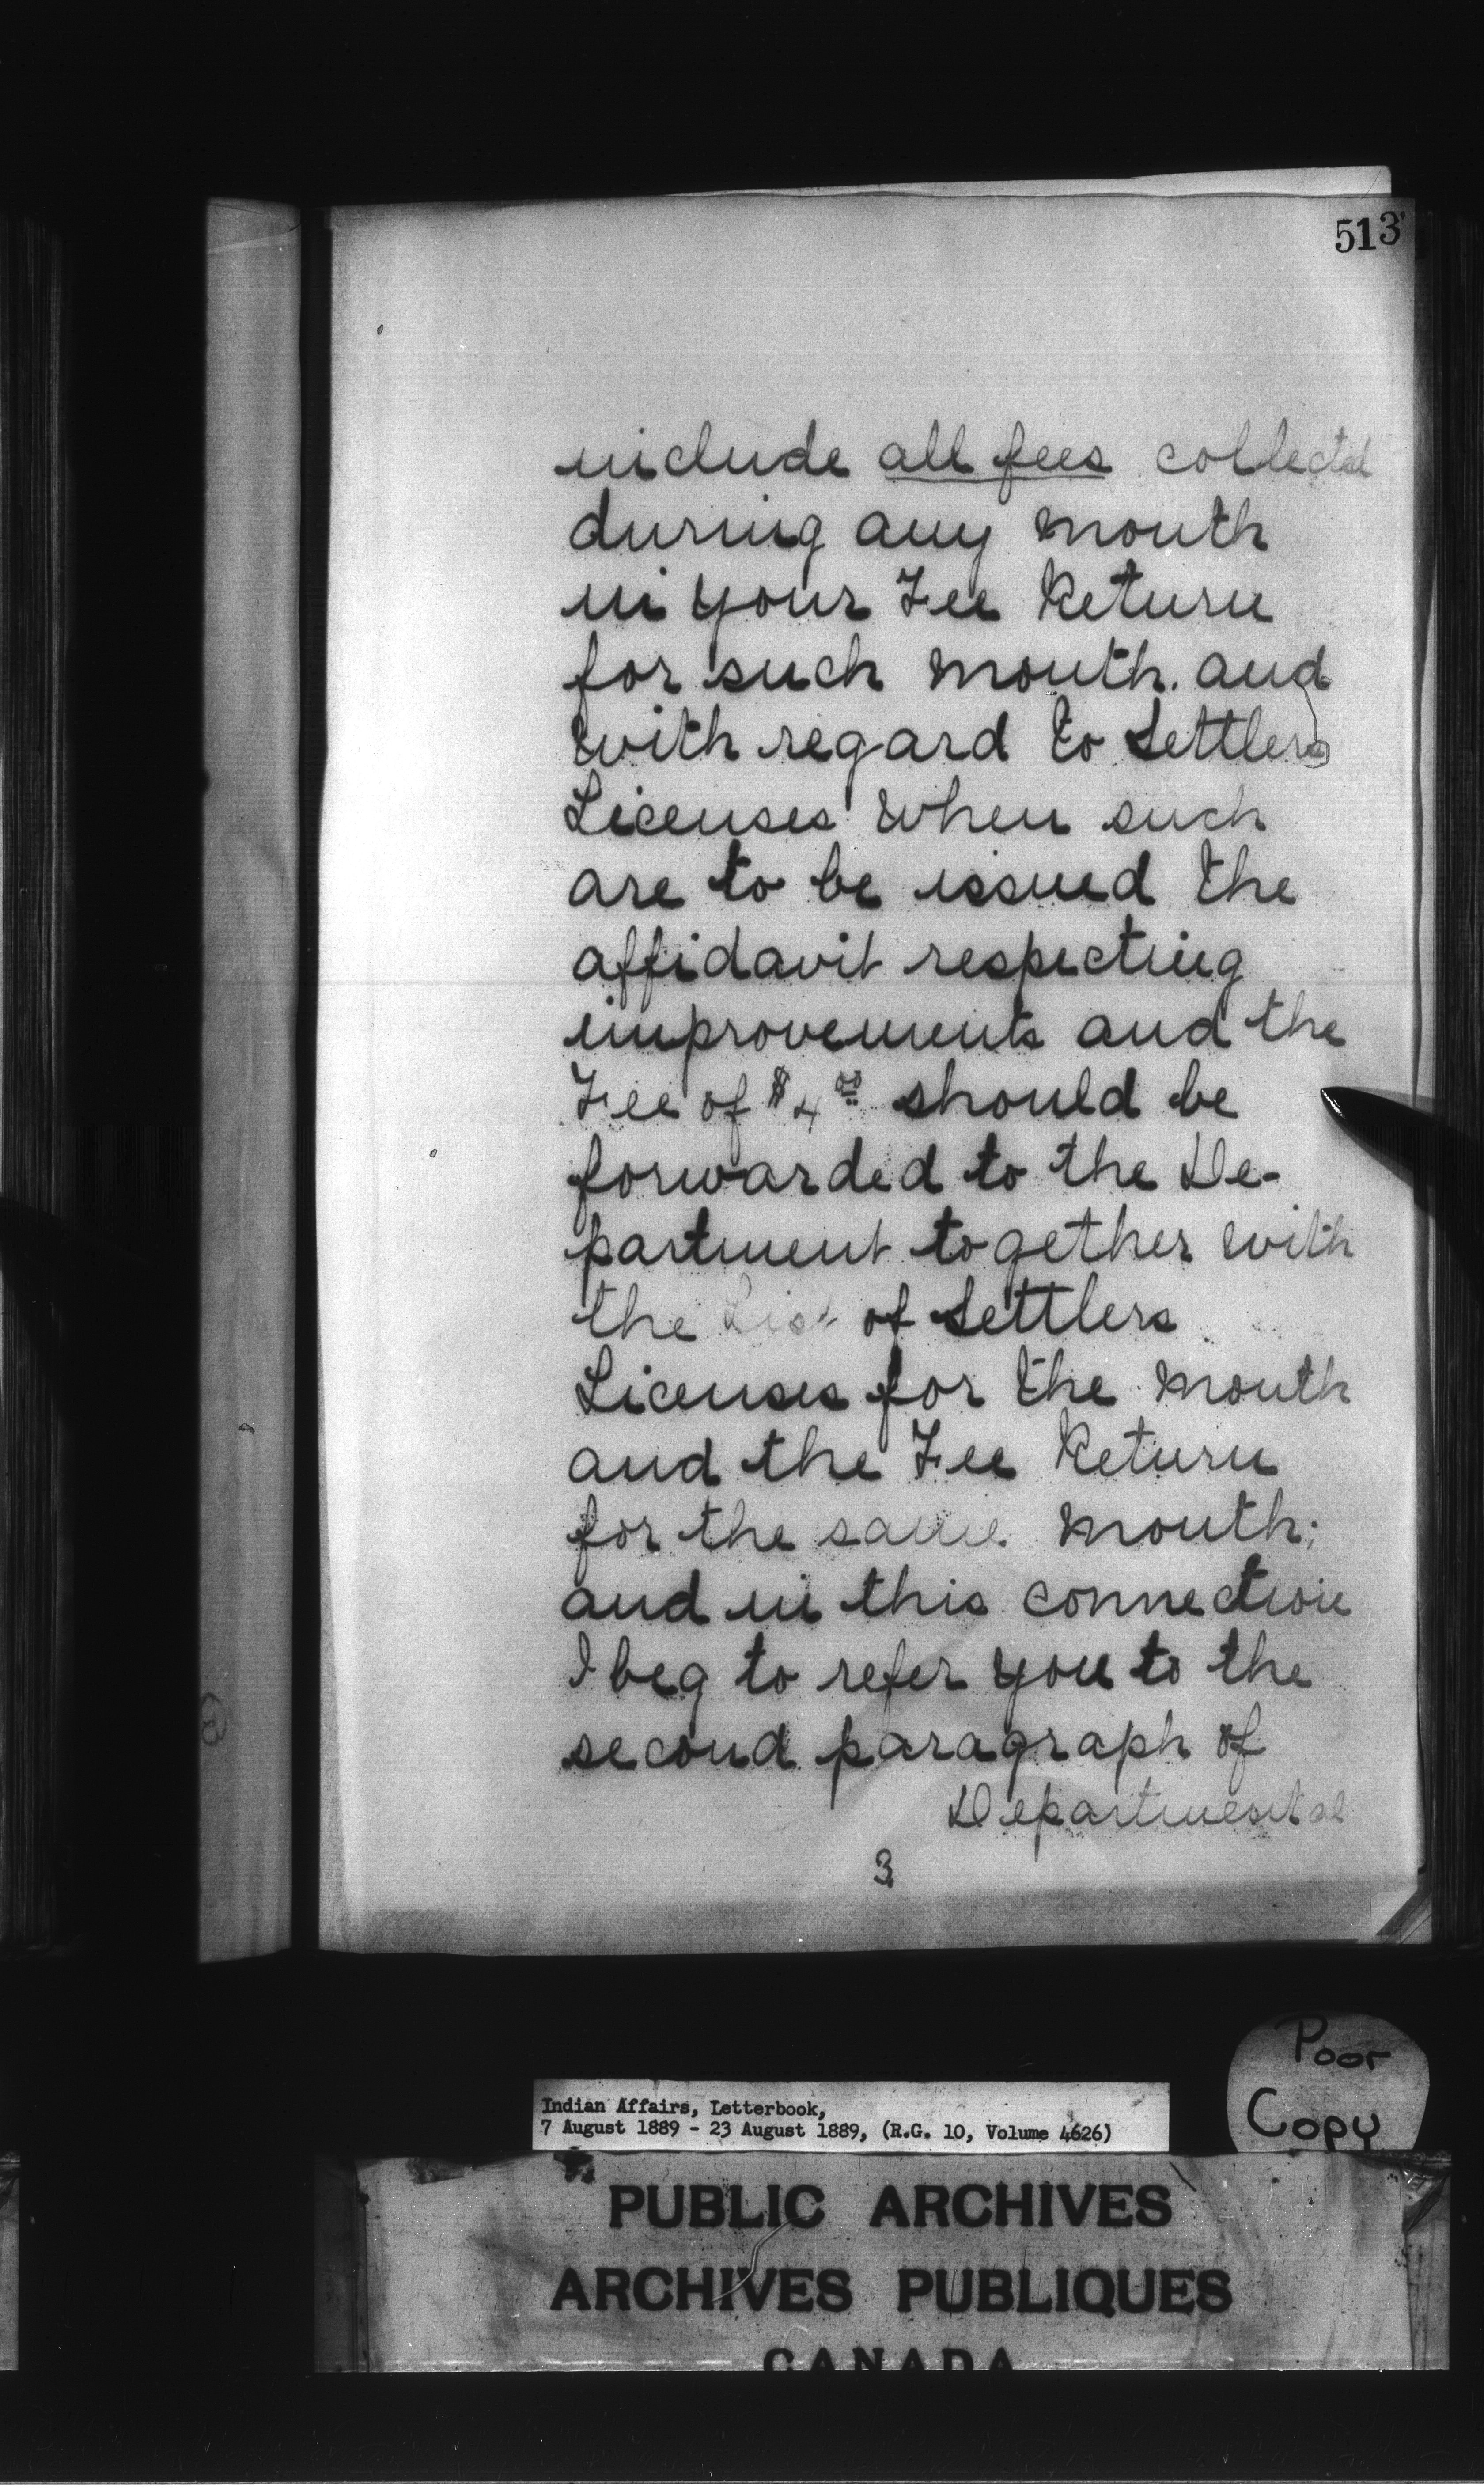 513
include all fees collected
during any month
in your Fee Return
for such month. and
with regard to Settlers
Licenses when such
are to be issued the
affidavit respecting
improvements and the
Fee of $4.00 should be
forwarded to the De-
partment together with
the List of Settlers
Licenses for the month
and the Fee Return
for the same month;
and in this connection
I beg to refer you to the
second paragraph of
Departmental
3
Poor
Copy
Indian Affairs, Letterbook,
7 August 1889 - 23 August 1889, (R.G. 10, Volume 4626)
PUBLIC ARCHIVES
ARCHIVES PUBLIQUES
CANADA